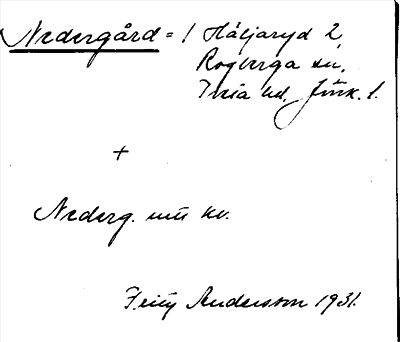 Nedergård = / Häljaryd 2,
Rogberga sn,
Tveta hd, Jönk. l.
+
Nederg. um kv.
Andersson 1931.